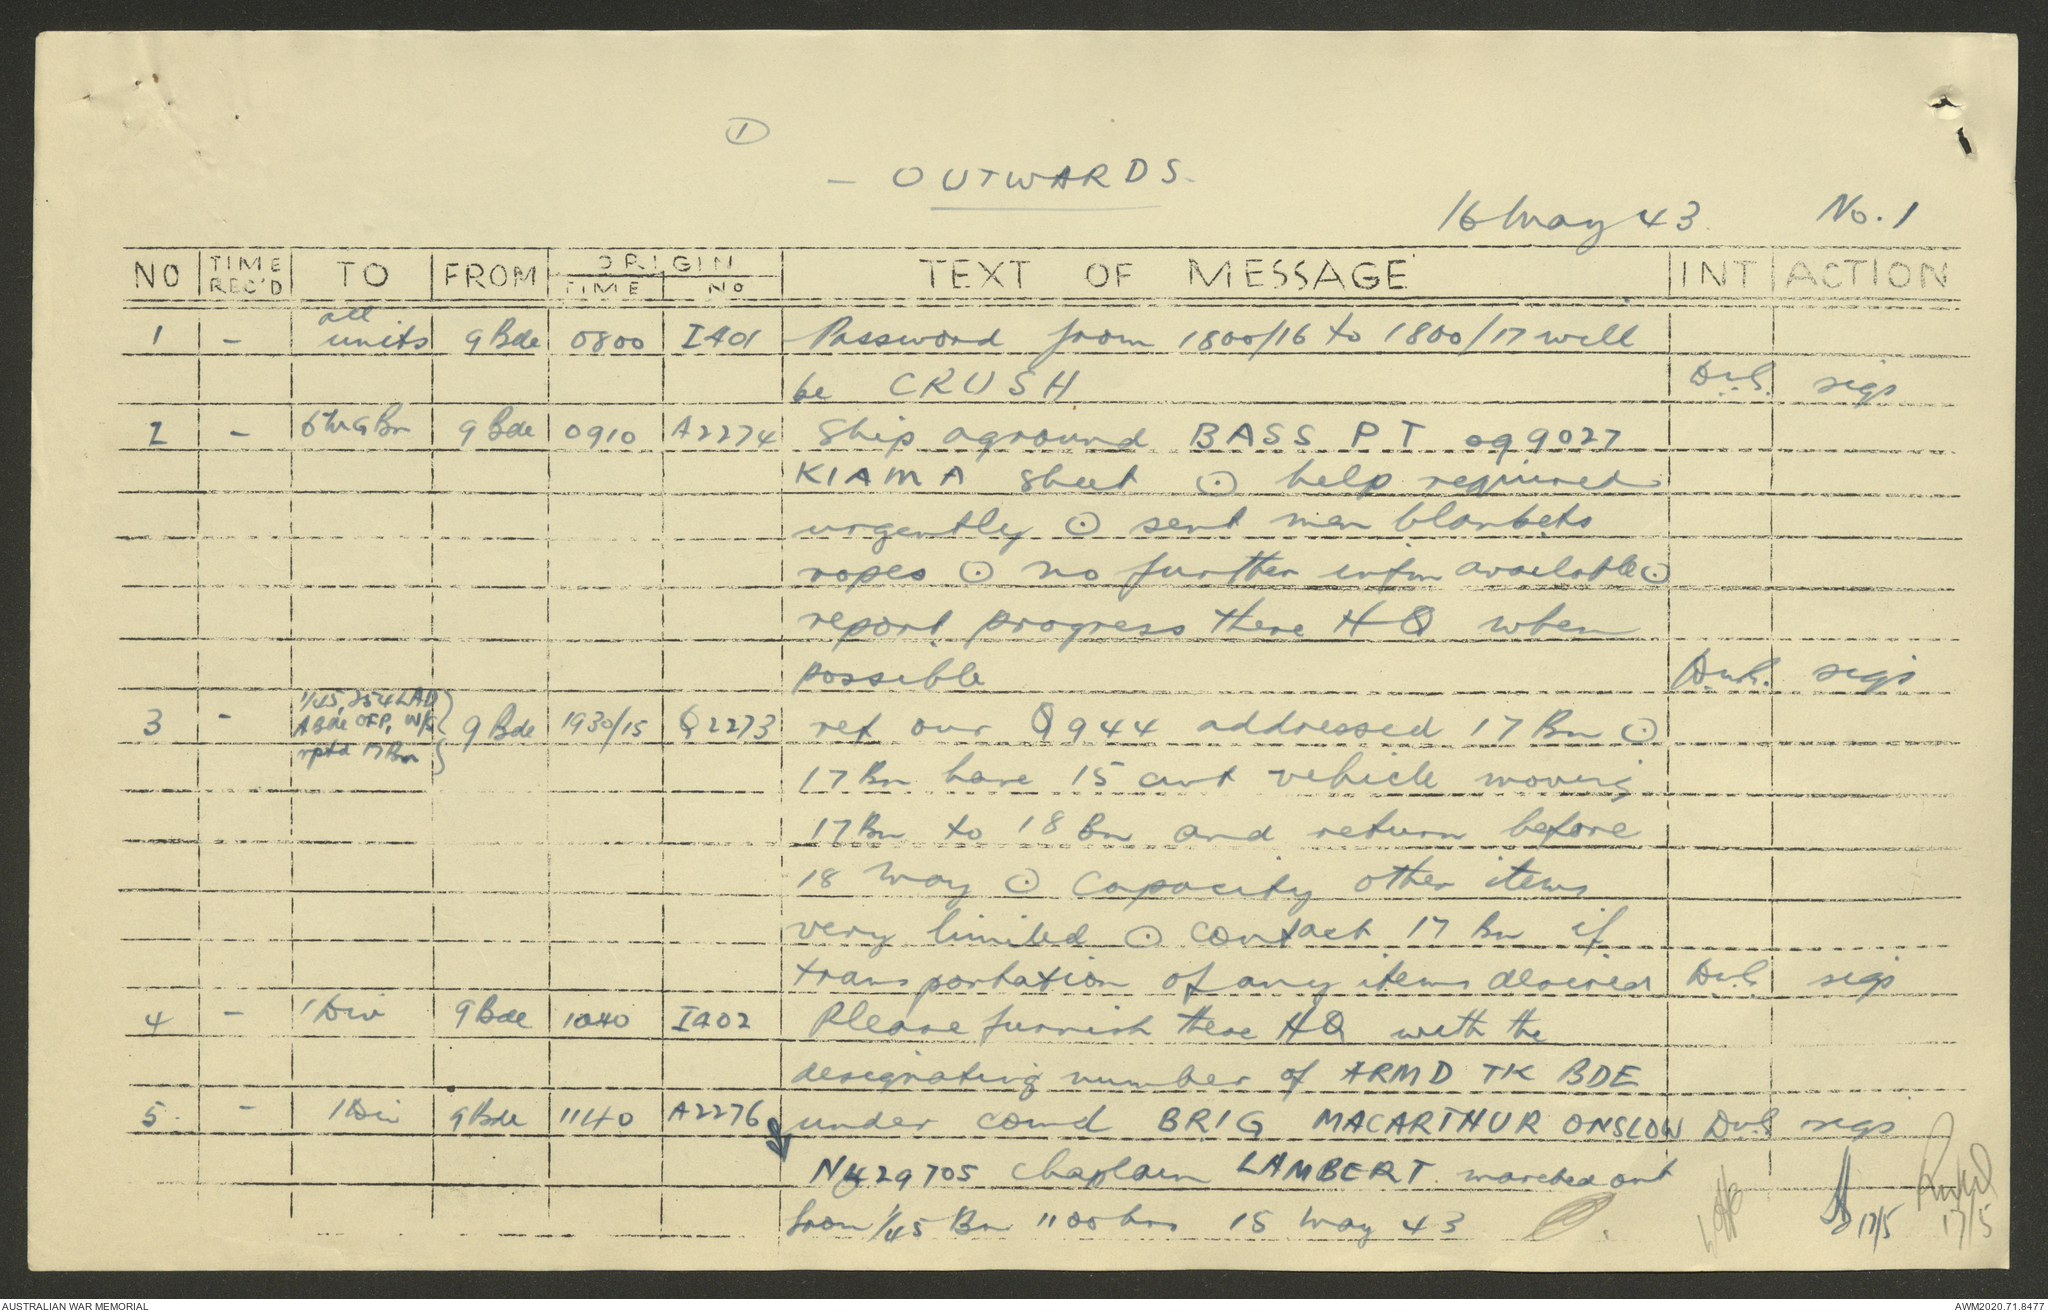 1
- OUTWARDS -
16 May 43 No. 1
NO TIME REC'D TO FROM ORIGIN TIME NO TEXT OF MESSAGE INT ACTION
1 - all units 9 Bde 0800 IA01 Password from 1800/16 to 1800/17 will
be CRUSH sigs
2 - 9 Bde 0910 A2274 Ship aground BASS PT 099027
KIAMA sheet ⊙ help required
urgently ⊙ sent men blankets
ropes ⊙ no further infm available ⊙
report progress there HQ when
possible sigs
3 - 1/45, 254 LAD
A Bde OFP, W/K
rptd 17 Bn
9 Bde 1930/15 Q2273 ref our Q944 addressed 17 Bn ⊙
17 Bn have 15 cwt vehicle moving
17 Bn to 18 Bn and return before
18 May ⊙ Capacity other items
very limited ⊙ contact 17 Bn if
transportation of any items desired sigs
4 - 1 Div 9 Bde 1040 IA02 Please furnish there HQ with the
designating number of ARMD TK BDE
5 - 1 Div 9 Bde 1140 A2276 under comd BRIG MACARTHUR ONSLOW sigs
429705 Chaplain LAMBERT marched out
from 1/45 Bn 1100 hrs 15 May 43
17/5 17/5
AUSTRALIAN WAR MEMORIAL AWM2020.71.8477